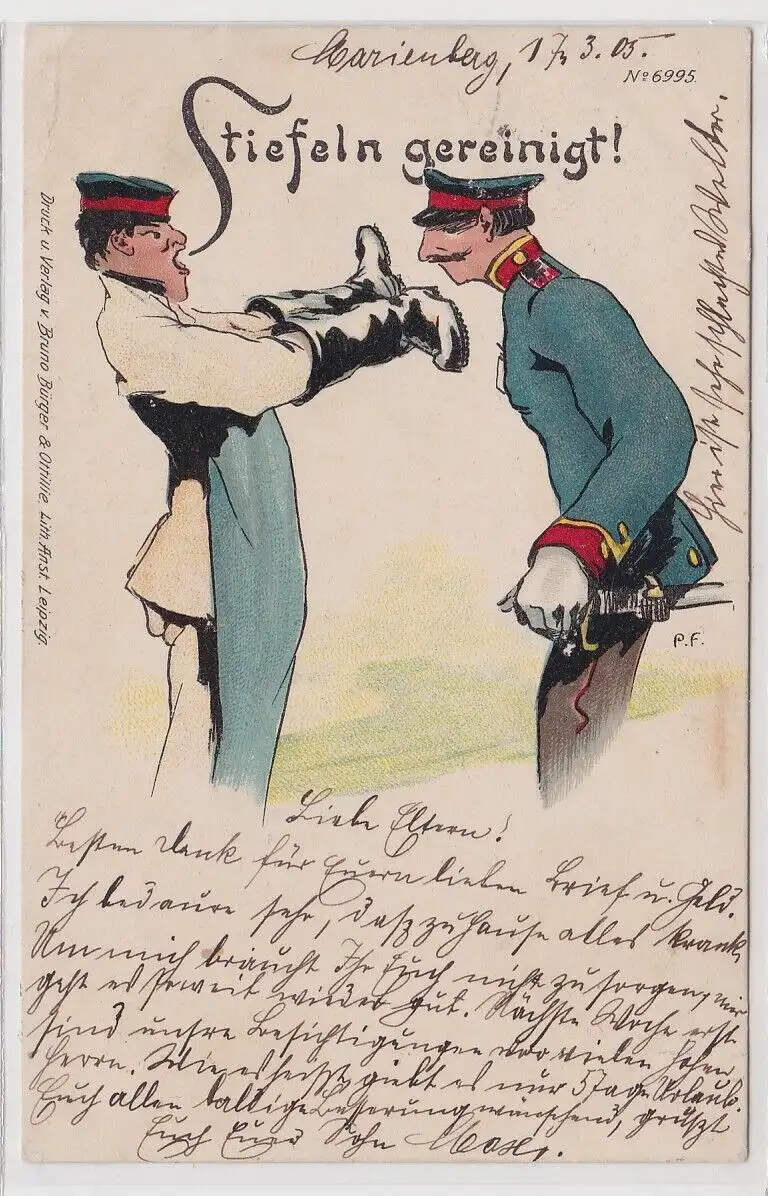 Marienberg, 17. 3. 05.
No 6995.
Stiefeln gereinigt!
Druck u. Verlag v. Bruno Bürger & Ottillie, Lith. Anst. Leipzig.
Hier ist sehr schlechtes Wetter.
P.F.
Liebe Eltern!
Besten Dank für Euern lieben Brief u. Geld.
Ich bedaure sehr, dasz zu Hause alles krank.
Um mich braucht Ihr Euch nicht zu sorgen, mir
geht es soweit wieder gut. Nächste Woche erst
sind unsre Besichtigungen vor vielen hohen
Herrn. Wie es heiszt giebt es nur 5 Tage Urlaub.
Euch allen baldige Besserung wünschend, grüszt
Euch Euer Sohn Max.